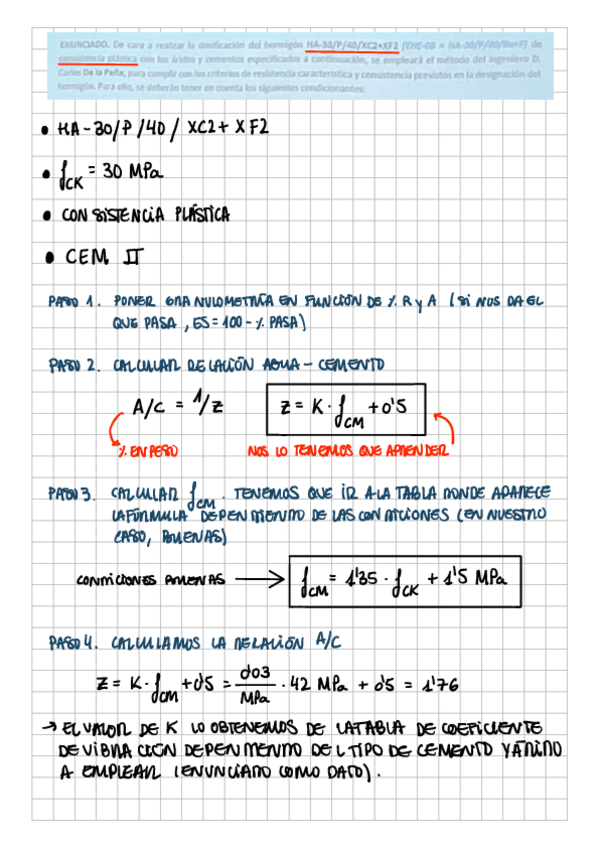 ENUNCIADO. De cara a realizar la dosificación del hormigón HA-30/P/40/XC2+XF2 (EHE-08 = HA-30/P/40/IIa+F) de
consistencia plástica con los áridos y cementos especificados a continuación, se empleará el método del ingeniero D.
Carlos De la Peña, para cumplir con los criterios de resistencia característica y consistencia previstos en la designación del
hormigón. Para ello, se deberán tener en cuenta los siguientes condicionantes:
• HA-30/P/40/ XC2+ XF2
• fCK = 30 MPa
• CONSISTENCIA PLÁSTICA
• CEM II
PASO 1. PONER GRANULOMETRÍA EN FUNCIÓN DE % R y A (SI NOS DA EL
QUE PASA, ES = 100 - % PASA)
PASO 2. CALCULAR RELACIÓN AGUA - CEMENTO
A/C = 1/Z    Z = K · fCM + 0'5
% EN PESO    NOS LO TENEMOS QUE APRENDER
PASO 3. CALCULAR fCM. TENEMOS QUE IR A LA TABLA DONDE APARECE
LA FÓRMULA DEPENDIENDO DE LAS CONDICIONES (EN NUESTRO
CASO, BUENAS)
CONDICIONES BUENAS → fCM = 1'35 · fCK + 1'5 MPa
PASO 4. CALCULAMOS LA RELACIÓN A/C
Z = K · fCM + 0'5 = 0'03/MPa · 42 MPa + 0'5 = 1'76
→ EL VALOR DE K LO OBTENEMOS DE LA TABLA DE COEFICIENTE
DE VIBRACIÓN DEPENDIENDO DEL TIPO DE CEMENTO Y ÁRIDO
A EMPLEAR (ENUNCIADO COMO DATO).